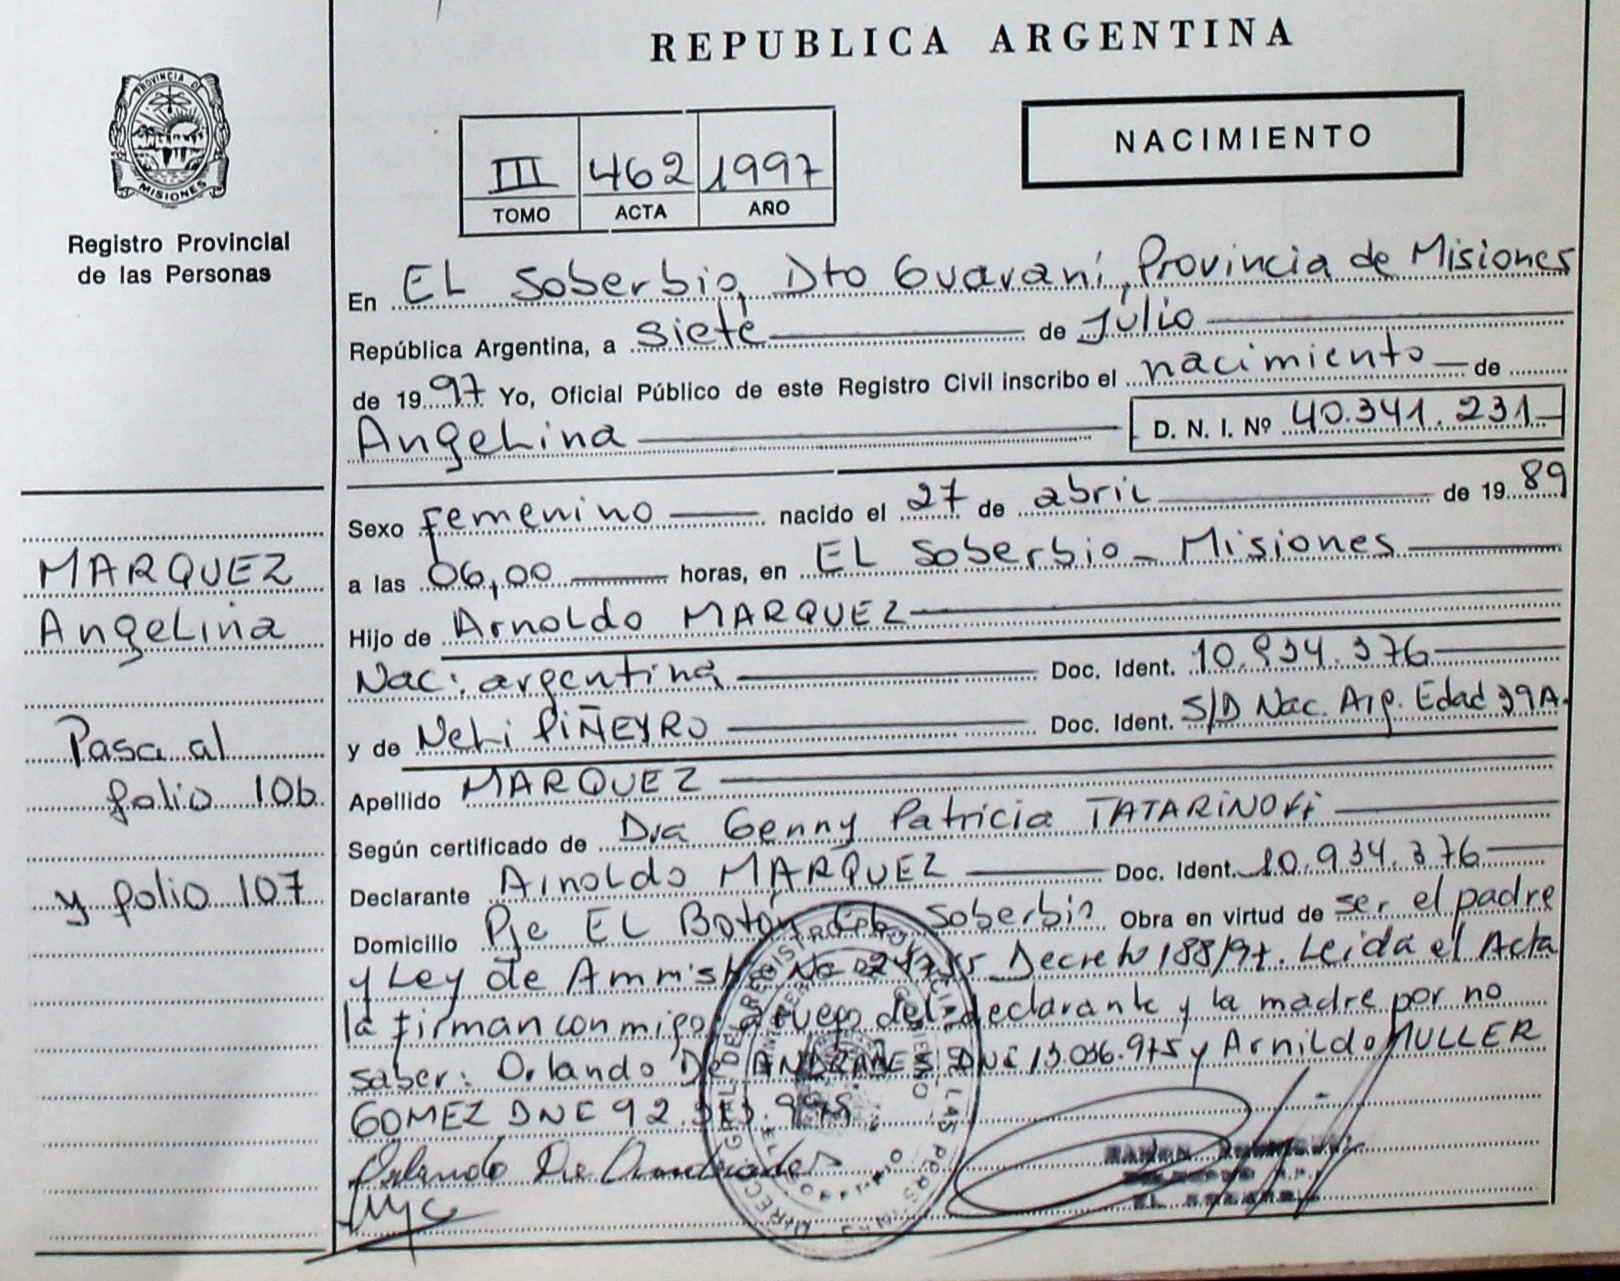 REPUBLICA ARGENTINA
PROVINCIA DE
MISIONES
Registro Provincial
de las Personas
III 462 1997
TOMO ACTA AÑO
NACIMIENTO
En EL Soberbio, Dto Guaraní, Provincia de Misiones
República Argentina, a siete de Julio
de 1997 Yo, Oficial Público de este Registro Civil inscribo el nacimiento de
Angelina D. N. I. Nº 40.341.231
Sexo femenino nacido el 27 de abril de 1989
a las 06,00 horas, en EL Soberbio - Misiones
Hijo de Arnoldo MARQUEZ
Nac: argentina Doc. Ident. 10.934.376
y de Neli PIÑEYRO Doc. Ident. S/D Nac. Arg. Edad 39A.
Apellido MARQUEZ
Según certificado de Dra Genny Patricia TATARINOFF
Declarante Arnoldo MARQUEZ Doc. Ident. 10.934.376
Domicilio Pje EL Botón, EL Soberbio Obra en virtud de ser el padre
y Ley de Amnistía No 24755 Decreto 188/97. Leida el Acta
la firman conmigo, a ruego del declarante y la madre por no
saber: Orlando De ANDRADES DNI 13.036.975 y Arnildo MULLER
GOMEZ DNI 92.
Orlando De Andrades
MARQUEZ
Angelina
Pasa al
folio 106
y folio 107